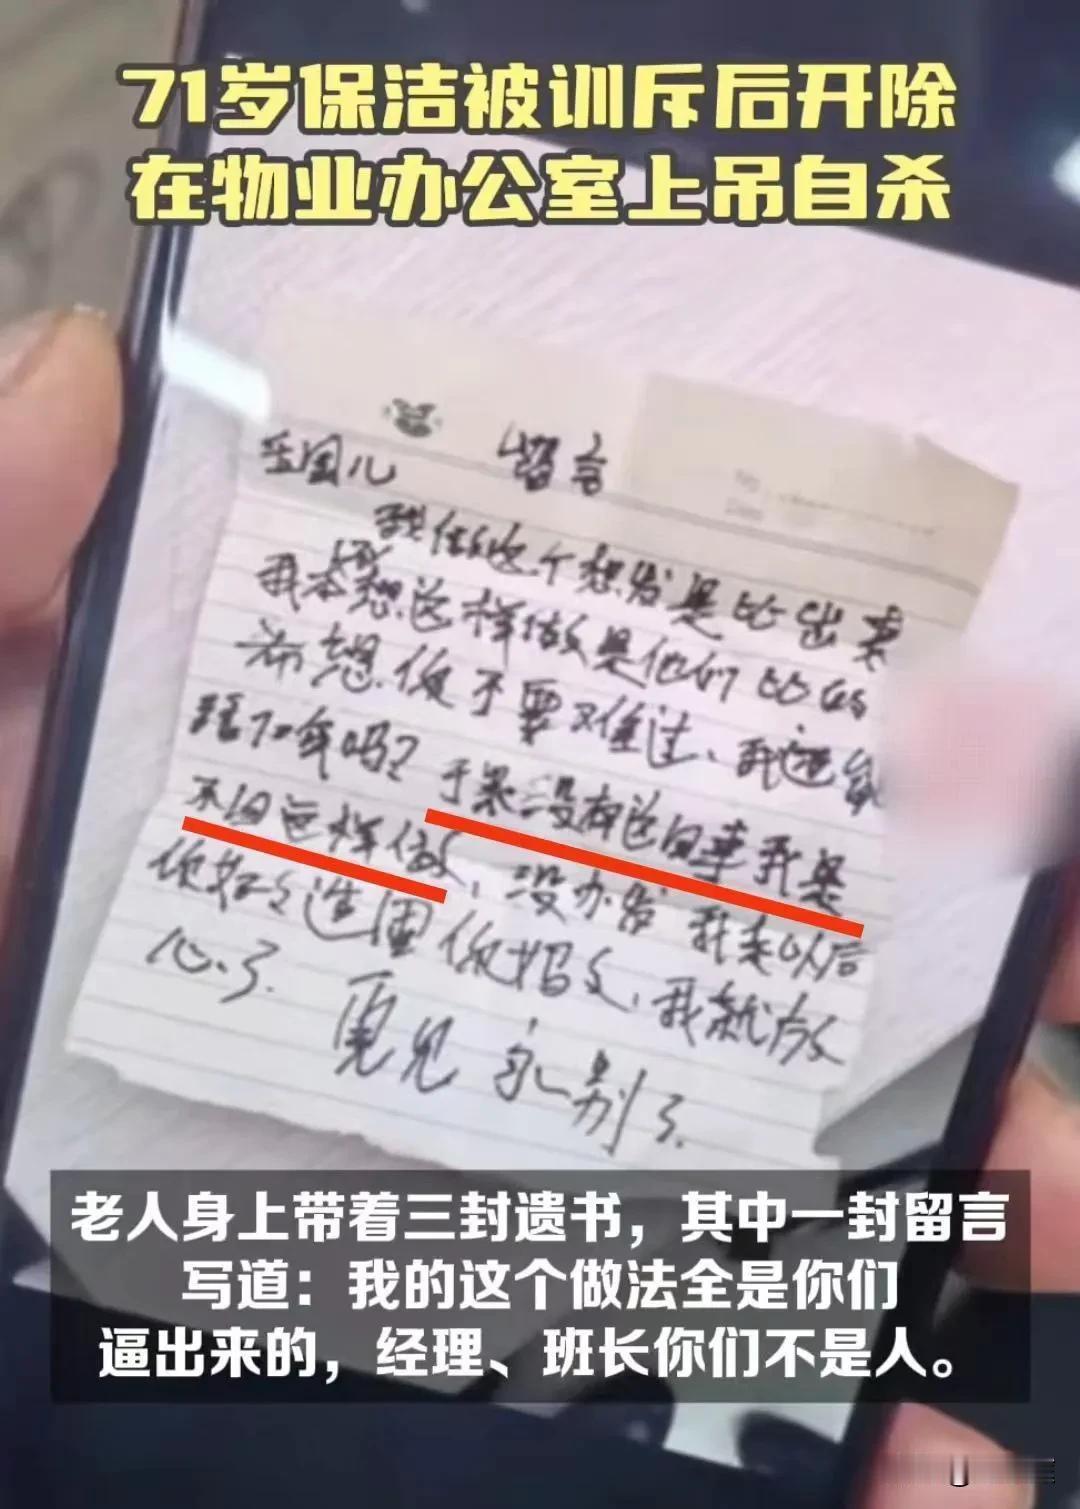 71岁保洁被训斥后开除
在物业办公室上吊自杀
留言
国儿
我做这个想发是比出来
我不想这样做是他们比的
希想你不要难过、我造
吗？于果没有这回事我是
不回这样做、没办发 我走以后
你好好造 你妈文、我就放
心了. 再见 永别了.
老人身上带着三封遗书，其中一封留言
写道：我的这个做法全是你们
逼出来的，经理、班长你们不是人。